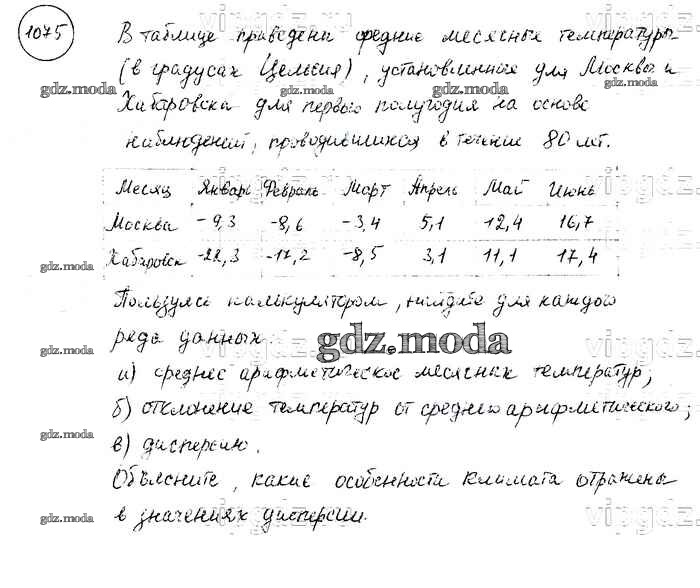 1075
В таблице приведены средние месячные температуры
(в градусах Цельсия), установленные для Москвы и
Хабаровска для первого полугодия на основе
наблюдений, проводившихся в течение 80 лет.
Месяц Январь Февраль Март Апрель Май Июнь
Москва -9,3 -8,6 -3,4 5,1 12,4 16,7
Хабаровск -22,3 -17,2 -8,5 3,1 11,1 17,4
Пользуясь калькулятором, найдите для каждого
ряда данных:
а) среднее арифметическое месячных температур;
б) отклонение температур от среднего арифметического;
в) дисперсию.
Объясните, какие особенности климата отражены
в значениях дисперсии.
gdz.moda
gdz.moda
gdz.moda
gdz.moda
gdz.moda
gdz.moda
gdz.moda
gdz.moda
gdz.moda
gdz.moda
gdz.moda